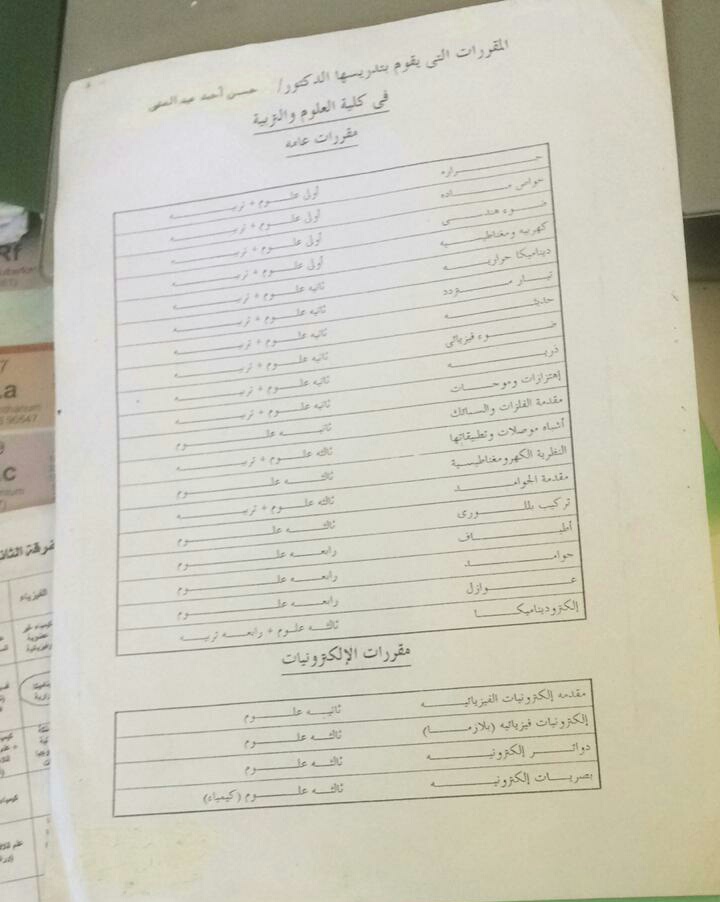 المقررات التى يقوم بتدريسها الدكتور/ حسن أحمد عبدالغنى
فى كلية العلوم والتربية
مقررات عامه
حراره أولى علوم + تربيه
خواص ماده أولى علوم + تربيه
ضوء هندسى أولى علوم + تربيه
كهربيه ومغناطيسيه أولى علوم + تربيه
ديناميكا حراريه ثانيه علوم + تربيه
تيار متردد ثانيه علوم + تربيه
حديثه ثانيه علوم + تربيه
ضوء فيزيائى ثانيه علوم + تربيه
ذريه ثانيه علوم + تربيه
إهتزازات وموجات ثانيه علوم + تربيه
مقدمة الفلزات والسبائك ثانيه علوم
أشباه موصلات وتطبيقاتها ثالثه علوم + تربيه
النظرية الكهرومغناطيسية ثالثه علوم
مقدمة الجوامد ثالثه علوم + تربيه
تركيب بللورى ثالثه علوم
أطياف رابعه علوم
جوامد رابعه علوم
عوازل رابعه علوم
إلكتروديناميكا ثالثه علوم + رابعه تربيه
مقررات الإلكترونيات
مقدمه إلكترونيات الفيزيائيه ثانيه علوم
إلكترونيات فيزيائيه (بلازما) ثالثه علوم
دوائر إلكترونيه ثالثه علوم
بصريات إلكترونيه ثالثه علوم (كيمياء)
الفيزياء